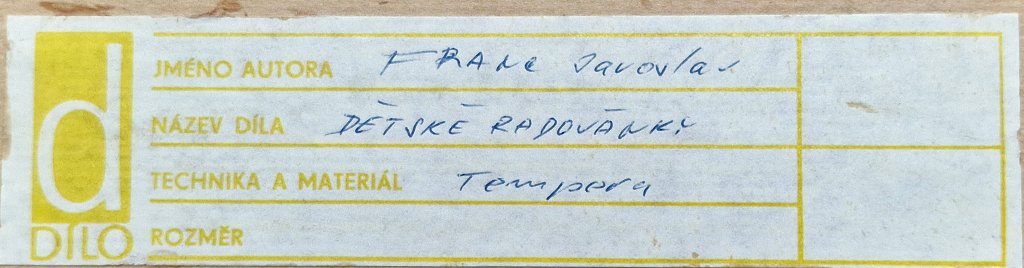 d
JMÉNO AUTORA FRANC Jaroslav
NÁZEV DÍLA DĚTSKÉ RADOVÁNKY
TECHNIKA A MATERIÁL Tempera
DÍLO ROZMĚR